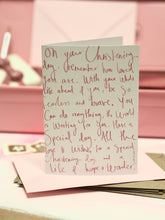 On your Christening
day, remember how loved
you are. With your whole
life ahead of you, be
fearless and brave. You
can do anything, the world
is waiting for you. Have a
special day. All the
love & wishes for a special
christening day and a
life of hope & wonder